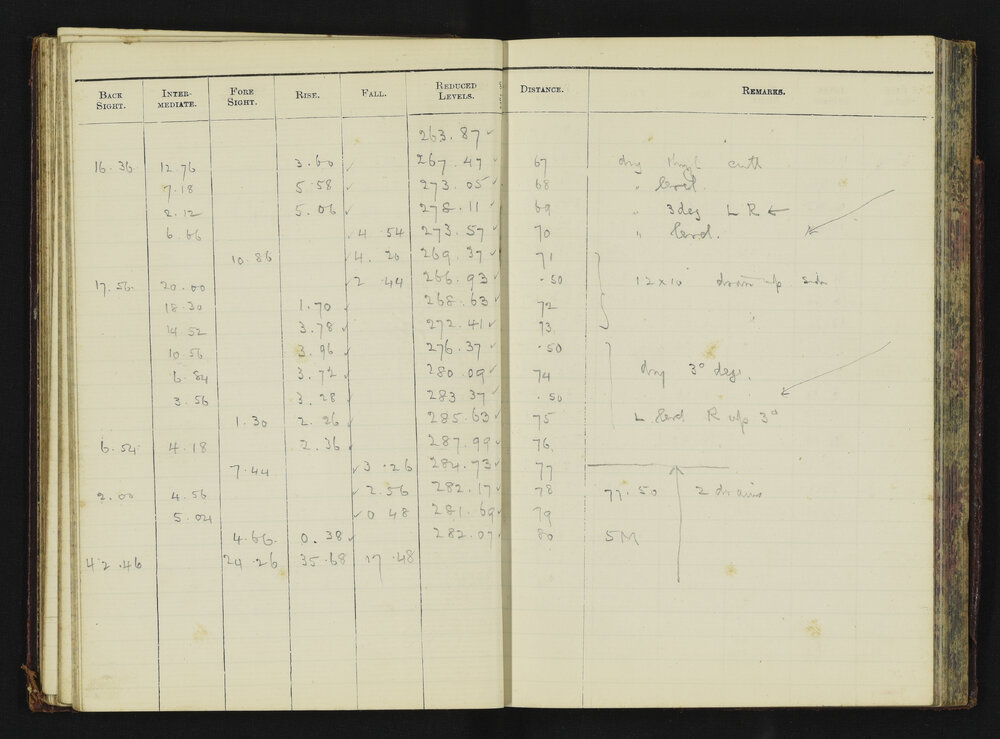 BACK SIGHT. INTER-MEDIATE. FORE SIGHT. RISE. FALL. REDUCED LEVELS. DISTANCE. REMARKS.
263.87 ✓
16.36 12.76 3.60 ✓ 267.47 ✓ 67 dry
7.18 5.58 ✓ 273.05 ✓ 68 " level.
2.12 5.06 ✓ 278.11 ✓ 69 " 3 deg L R ←
6.66 ✓ 4.54 273.57 ✓ 70 " level.
10.86 ✓ 4.20 269.37 ✓ 71
17.56 20.00 ✓ 2.44 266.93 ✓ .50 12 x 10 drain
18.30 1.70 ✓ 268.63 ✓ 72
14.52 3.78 ✓ 272.41 ✓ 73
10.56 3.96 ✓ 276.37 ✓ .50
6.84 3.72 ✓ 280.09 ✓ 74 dry 3° degs.
3.56 3.28 ✓ 283.37 ✓ .50
1.30 2.26 ✓ 285.63 ✓ 75 L level R up 3°
6.54 4.18 2.36 ✓ 287.99 ✓ 76
7.44 ✓ 3.26 284.73 ✓ 77
2.00 4.56 ✓ 2.56 282.17 ✓ 78 77.50 2 drains
5.04 ✓ 0 48 281.69 ✓ 79
4.66 0.38 ✓ 282.07 ✓ 80 5M
42.46 24.26 35.68 17.48